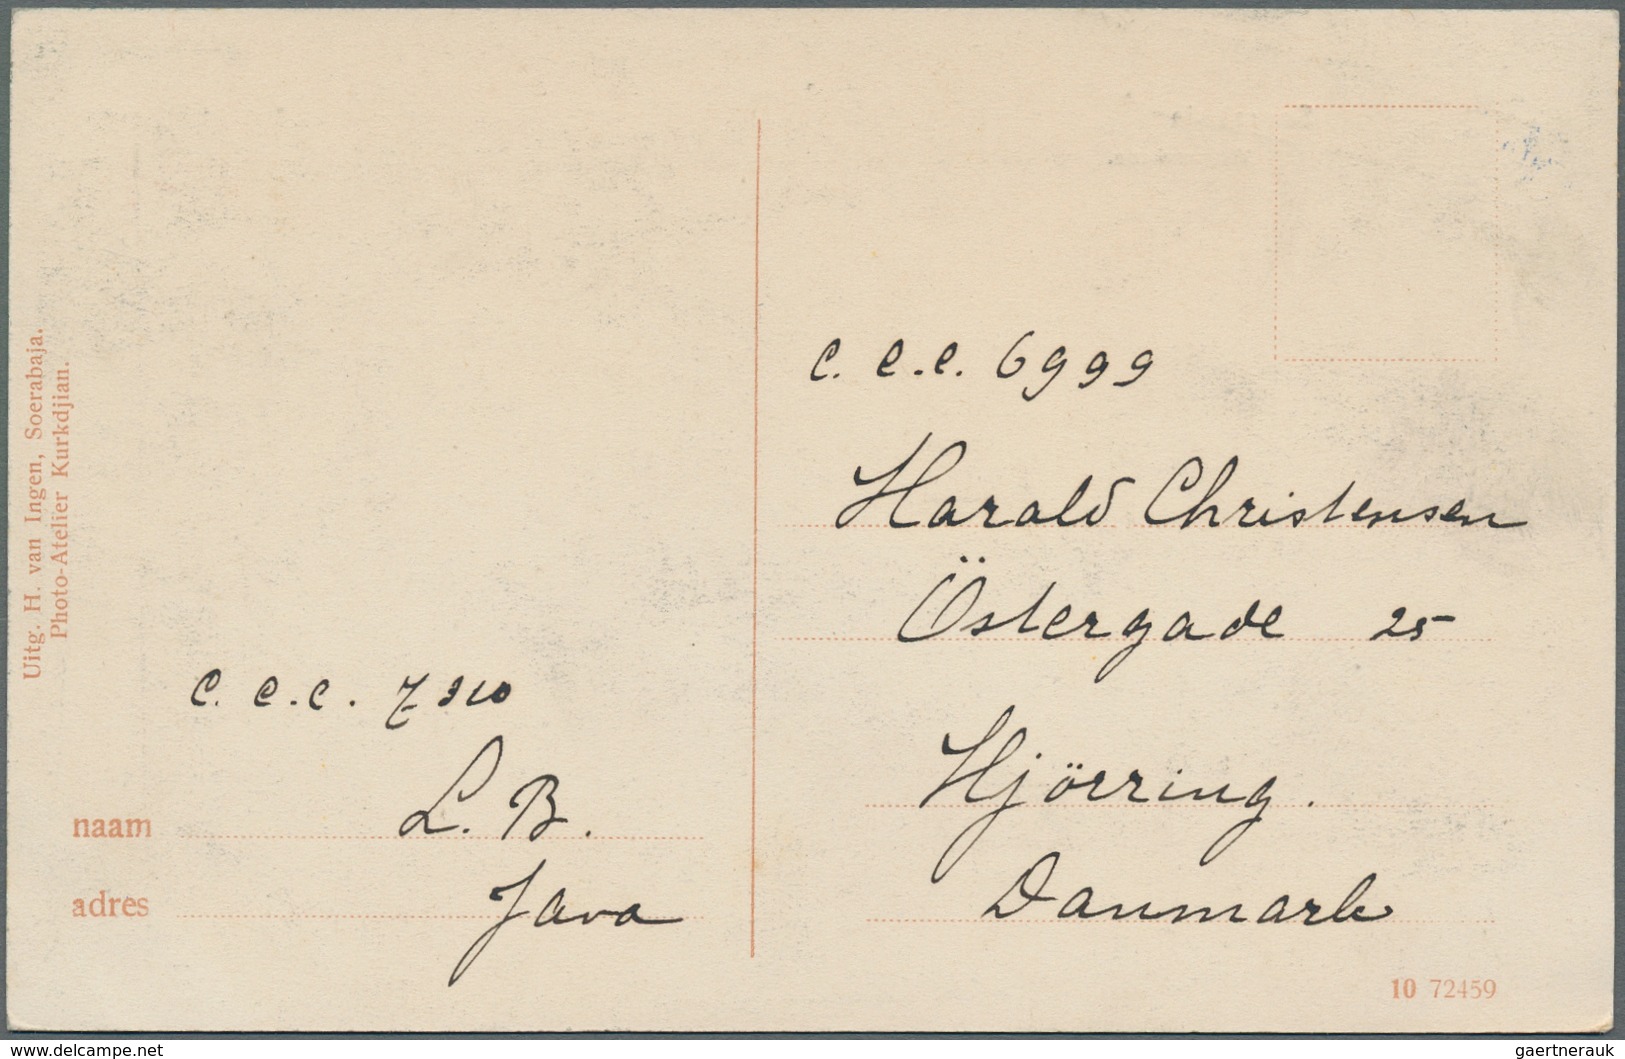 Uitg. H. van Ingen, Soerabaja.
Photo-Atelier Kurkdjian.
c. c.c. 7310
naam L. B.
adres Java
c. c.c. 6999
Harald Christensen
Östergade 25
Hjörring.
Danmark
10 72459
www.delcampe.net
gaertnerauk